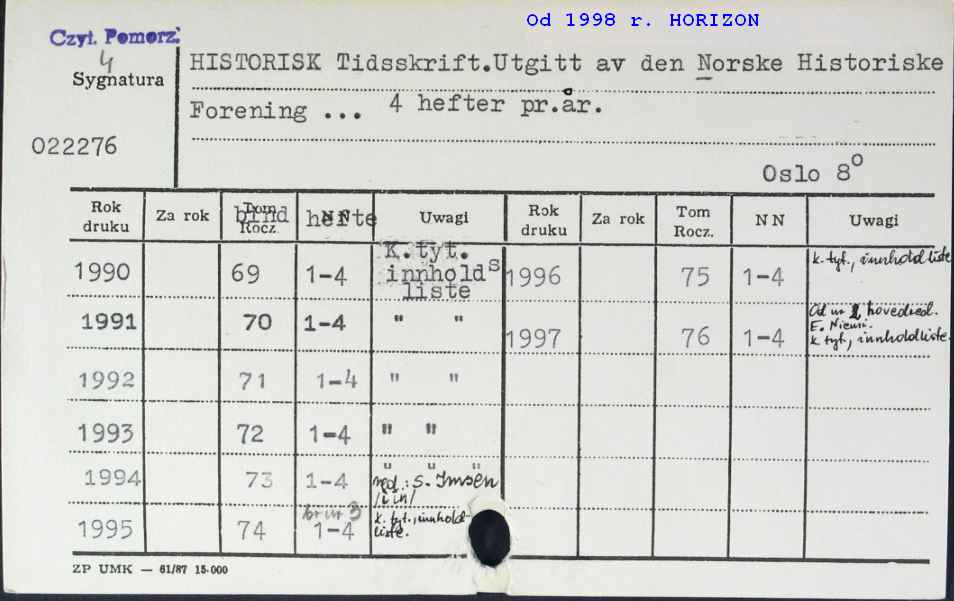 Od 1998 r. HORIZON
Czyt. Pomorz.
4
Sygnatura
HISTORISK Tidsskrift.Utgitt av den Norske Historiske
Forening ... 4 hefter pr.år.
022276
Oslo 8°
Rok druku Za rok Tom Rocz. bind NN hefte Uwagi Rok druku Za rok Tom Rocz. NN Uwagi
1990 69 1-4 K.tyt. innholds liste 1996 75 1-4 k. tyt., innholdliste
1991 70 1-4 " " 1997 76 1-4 Od nr 2 hovedred. E. Niemi. k. tyt., innholdliste.
1992 71 1-4 " "
1993 72 1-4 " "
1994 73 1-4 " " " red.: S. Imsen
1995 74 br nr 3 1-4 k. tyt., innhold-liste.
ZP UMK — 61/87 15·000